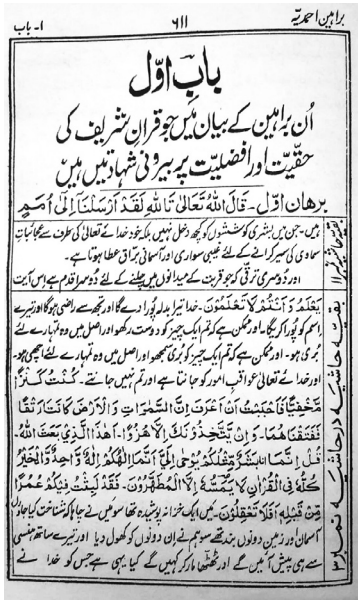 براہین احمدیہ ۶۱۱ ۱- باب
باب اول
اُن براہین کے بیان میں جو قرآن شریف کی
حقیت اور افضلیت پر بیرونی شہادتیں ہیں
برھان اوّل - قال اللہ تعالیٰ تاللہ لقد ارسلنا الیٰ اُمم
ہیں۔ جن میں بشری کوششوں کو کچھ دخل نہیں بلکہ خود خدائے تعالیٰ کی طرف سے عجائبات
سماوی کی سیر کرانے کے لئے غیبی سواری اور آسمانی براق عطا ہوتا ہے۔
اور دُوسری ترقی کہ جو قربت کے میدانوں میں چلنے کے لئے دُوسرا قدم ہے اس آیت
یعلم و انتم لا تعلمون۔ خدا تیرا بدلہ پورا دے گا اور تجھ سے راضی ہوگا اور تیرے
اسم کو پورا کریگا۔ اور ممکن ہے کہ تم ایک چیز کو دوست رکھو اور اصل میں وہ تمہارے لئے
بُری ہو۔ اور ممکن ہے کہ تم ایک چیز کو بُری سمجھو اور اصل میں وہ تمہارے لئے اچھی ہو۔
اور خدا ئے تعالیٰ عواقب امور کو جانتا ہے اور تم نہیں جانتے۔ کُنت کنزًا
مخفیًّا فاحببت ان اعرف ان السمٰوات والارض کانتا رتقًا
ففتقنٰھما۔ وان یتخذونک الا ھزوًا۔ اھٰذا الذی بعث اللہ۔
قل انما انا بشر مثلکم یوحٰی الیّ انما الٰھکم الٰہ واحد والخیر
کلہ فی القراٰن لا یمسّہ الا المطھرون۔ فقد لبثت فیکم عمرًا
من قبلہ افلا تعقلون۔ میں ایک خزانہ پوشیدہ تھا سو میں نے چاہا کہ شناخت کیا جاؤں
آسمان اور زمین دونوں بند تھے سو ہم نے اِن دونوں کو کھول دیا اور تیرے ساتھ ہنسی
سے ہی پیش آئیں گے اور ٹھٹھا مار کر کہیں گے کیا یہی ہے جس کو خدا نے
بقیہ حاشیہ در حاشیہ نمبر ۳